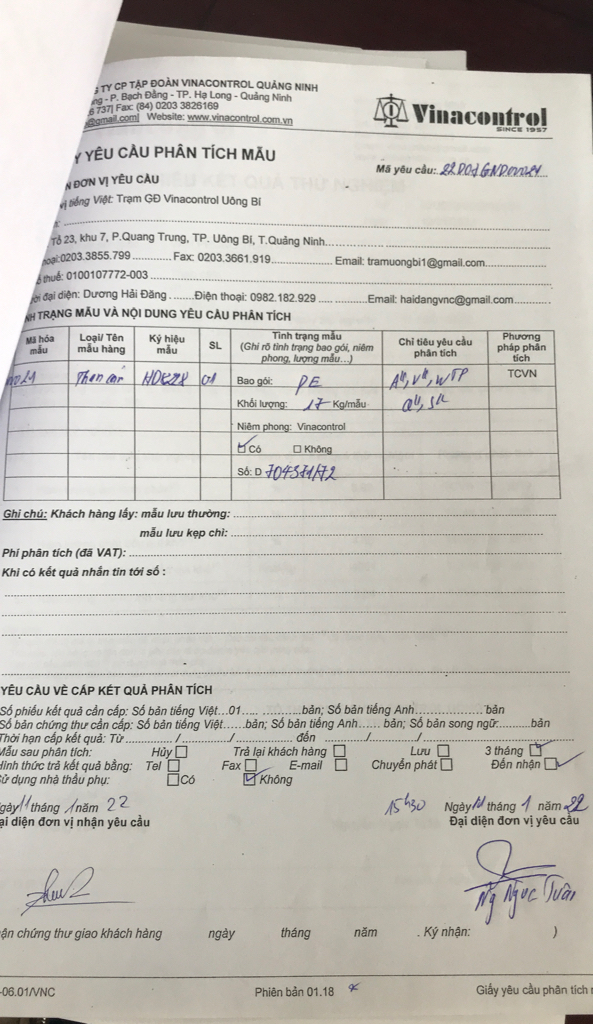 TY CP TẬP ĐOÀN VINACONTROL QUẢNG NINH
- P. Bạch Đằng - TP. Hạ Long - Quảng Ninh
737| Fax: (84) 0203 3826169
@gmail.com| Website: www.vinacontrol.com.vn
Vinacontrol
SINCE 1957
YÊU CẦU PHÂN TÍCH MẪU
Mã yêu cầu:
ĐƠN VỊ YÊU CẦU
tiếng Việt: Trạm GĐ Vinacontrol Uông Bí
Tổ 23, khu 7, P.Quang Trung, TP. Uông Bí, T.Quảng Ninh
0203.3855.799 Fax: 0203.3661.919 Email: tramuongbi1@gmail.com
thuế: 0100107772-003
đại diện: Dương Hải Đăng Điện thoại: 0982.182.929 Email: haidangvnc@gmail.com
TRẠNG MẪU VÀ NỘI DUNG YÊU CẦU PHÂN TÍCH
Mã hóa mẫu
Loại/ Tên mẫu hàng
Ký hiệu mẫu
SL
Tình trạng mẫu
(Ghi rõ tình trạng bao gói, niêm phong, lượng mẫu...)
Chỉ tiêu yêu cầu phân tích
Phương pháp phân tích
Than
Bao gói: PE
TCVN
Khối lượng: 17 Kg/mẫu
Niêm phong: Vinacontrol
Có Không
Số: D 704571/72
Ghi chú: Khách hàng lấy: mẫu lưu thường:
mẫu lưu kẹp chì:
Phí phân tích (đã VAT):
Khi có kết quả nhắn tin tới số :
YÊU CẦU VỀ CẤP KẾT QUẢ PHÂN TÍCH
Số phiếu kết quả cần cấp: Số bản tiếng Việt...01 bản; Số bản tiếng Anh bản
Số bản chứng thư cần cấp: Số bản tiếng Việt bản; Số bản tiếng Anh bản; Số bản song ngữ bản
Thời hạn cấp kết quả: Từ / / đến / /
Mẫu sau phân tích: Hủy Trả lại khách hàng Lưu 3 tháng
Hình thức trả kết quả bằng: Tel Fax E-mail Chuyển phát Đến nhận
Sử dụng nhà thầu phụ: Có Không
Ngày 11 tháng 1 năm 22
15h30 Ngày 11 tháng 1 năm 22
Đại diện đơn vị nhận yêu cầu
Đại diện đơn vị yêu cầu
Ng Ngọc Tuân
chứng thư giao khách hàng ngày tháng năm . Ký nhận: )
-06.01/VNC
Phiên bản 01.18
Giấy yêu cầu phân tích